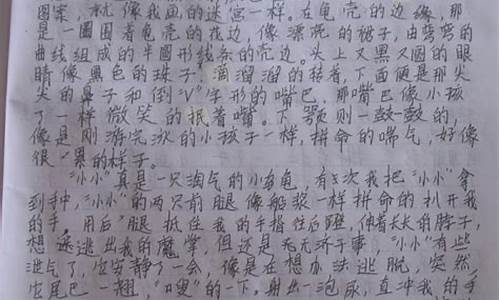 图案,就像我画的迷宫一样。在龟壳的边缘,那
是一圈围着龟壳的花边,像漂亮的裙子,由弯弯的
曲线组成的半圆形线条的壳边。头上又黑又圆的眼
睛像黑色的珠子,滴溜溜的转着,下面便是那尖
尖的鼻子和倒“V”字形的嘴巴,那嘴巴像小孩
了一样微笑的抿着嘴。下颚则一鼓一鼓的,
像是刚游完泳的小孩子一样,拼命的喘气,好像
很累的样子。
“小小”真是一只淘气的小乌龟,有次我把“小小”拿
到手中,“小小”的两只前腿像船桨一样拼命的扒开我
的手,用后腿抵住我的手指往后蹬,伸着长长的脖子,
想逃出我的魔掌,但还是无济于事。“小小”有些
泄气了,它安静了一会,像是在想办法逃脱,突然
它尾巴一翘,“嗖”的一下,射出一泡尿,直冲我的手